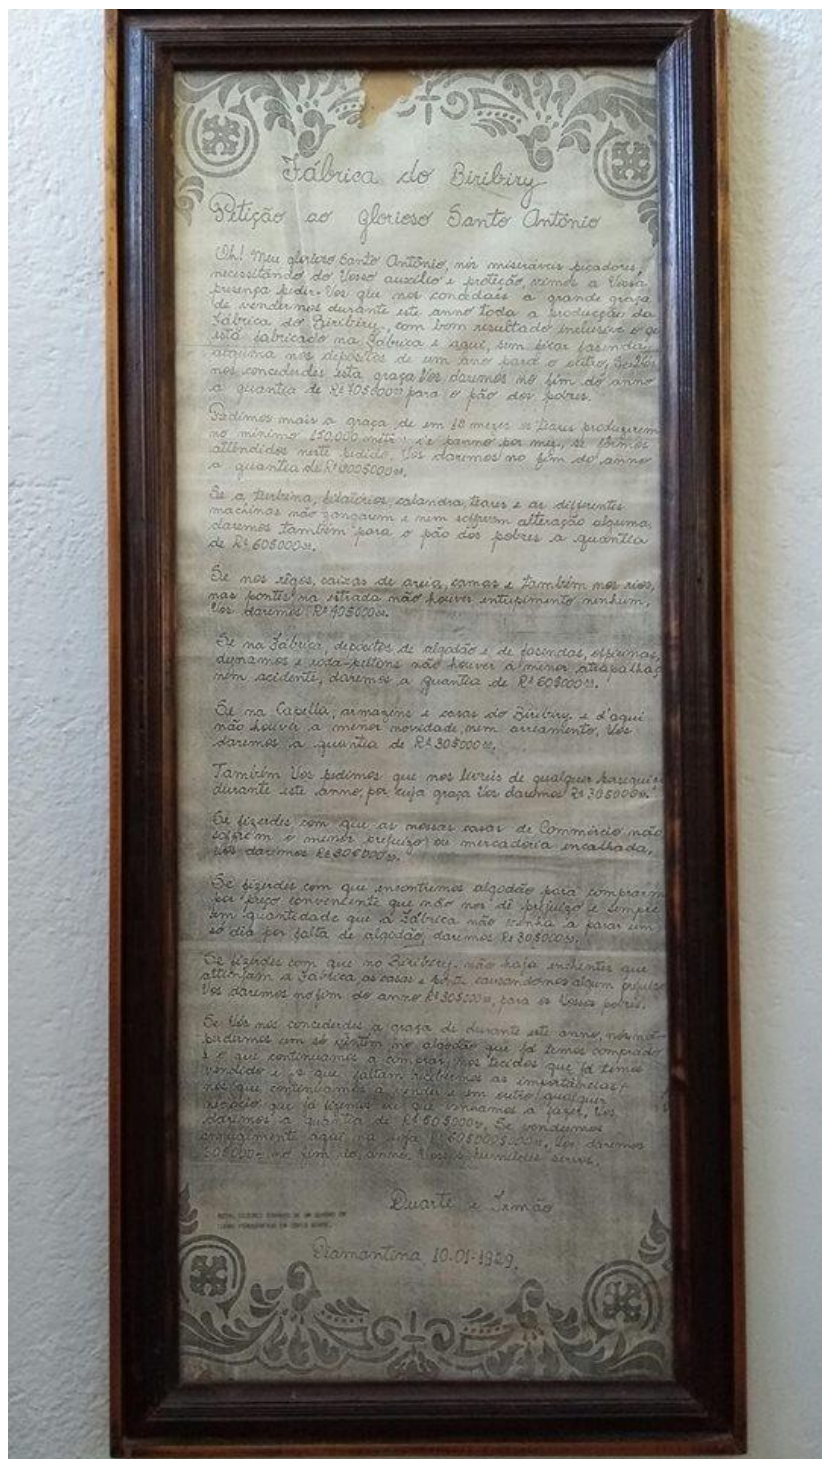 Fábrica do Biribiry
Petição ao glorioso Santo Antônio
Oh! Meu glorioso Santo Antônio, nós miseráveis pecadores,
necessitando do Vosso auxílio e proteção, vimos a Vossa
presença pedir-Vos que nos concedaes a grande graça
de vendermos durante este anno toda a producção da
Fábrica do Biribiry, com bom resultado inclusive o que
está fabricado na Fábrica e aqui, sem ficar fazenda
alguma nos depósitos de um ano para o outro, Se Vós
nos concederdes esta graça Vos daremos no fim do anno
a quantia de para o pão dos pobres.
Pedimos mais a graça de em 18 mezes os teares produzirem
no mínimo 150.000 de panno por mez, se formos
attendidos neste pedido, Vos daremos no fim do anno
a quantia de R$ 300$000
Se a turbina, filatórios, calandra, teares e as differentes
machinas não zangarem e nem soffrerem alteração alguma,
daremos também para o pão dos pobres a quantia
de R$ 60$000
Se nos régos, caixas de areia, camas e também nos rios,
nas pontes na estrada não houver entupimento nenhum,
Vos daremos R$ 40$000
Se na Fábrica, depósitos de algodão e de fazendas, officinas,
dynamos e roda-peltons não houver a menor atrapalhaç
nem acidente, daremos a quantia de R$ 60$000
Se na Capella, armazéns e casas do Biribiry e d'aqui
não houver a menor novidade, nem arreamento, Vos
daremos a quantia de R$ 30$000
Também Vos pedimos que nos livreis de qualquer
durante este anno, por cuja graça Vos daremos R$ 30$000
Se fizerdes com que as nossas casas de Commércio não
soffrem o menor prejuízo ou mercadoria encalhada,
Vos daremos R$ 30$000
Se fizerdes com que encontremos algodão para comprarm
por preço conveniente que não nos dê prejuízo e sempre
em quantidade que a Fábrica não venha a parar um
só dia por falta de algodão, daremos R$ 30$000
Se fizerdes com que no Biribiry não haja enchentes que
attinjam a Fábrica, as casas e ponte causando-nos algum prejuízo
Vos daremos no fim do anno R$ 30$000, para os Vossos pobres.
Se Vós nos concederdes a graça de durante este anno, nós não
perdermos um só vintém no algodão que já temos comprado
e o que continuamos a comprar, nos tecidos que já temos
vendido e que faltam recebermos as importâncias,
nos que continuamos a venda e em outro qualquer
negócio que já fizemos ou que venhamos a fazer, Vos
daremos a quantia de R$ 60$000, Se vendermos
annualmente aqui na loja Vos daremos
no fim do anno. Vossos humildes servos,
Duarte e Irmão
Diamantina 10-01-1929.